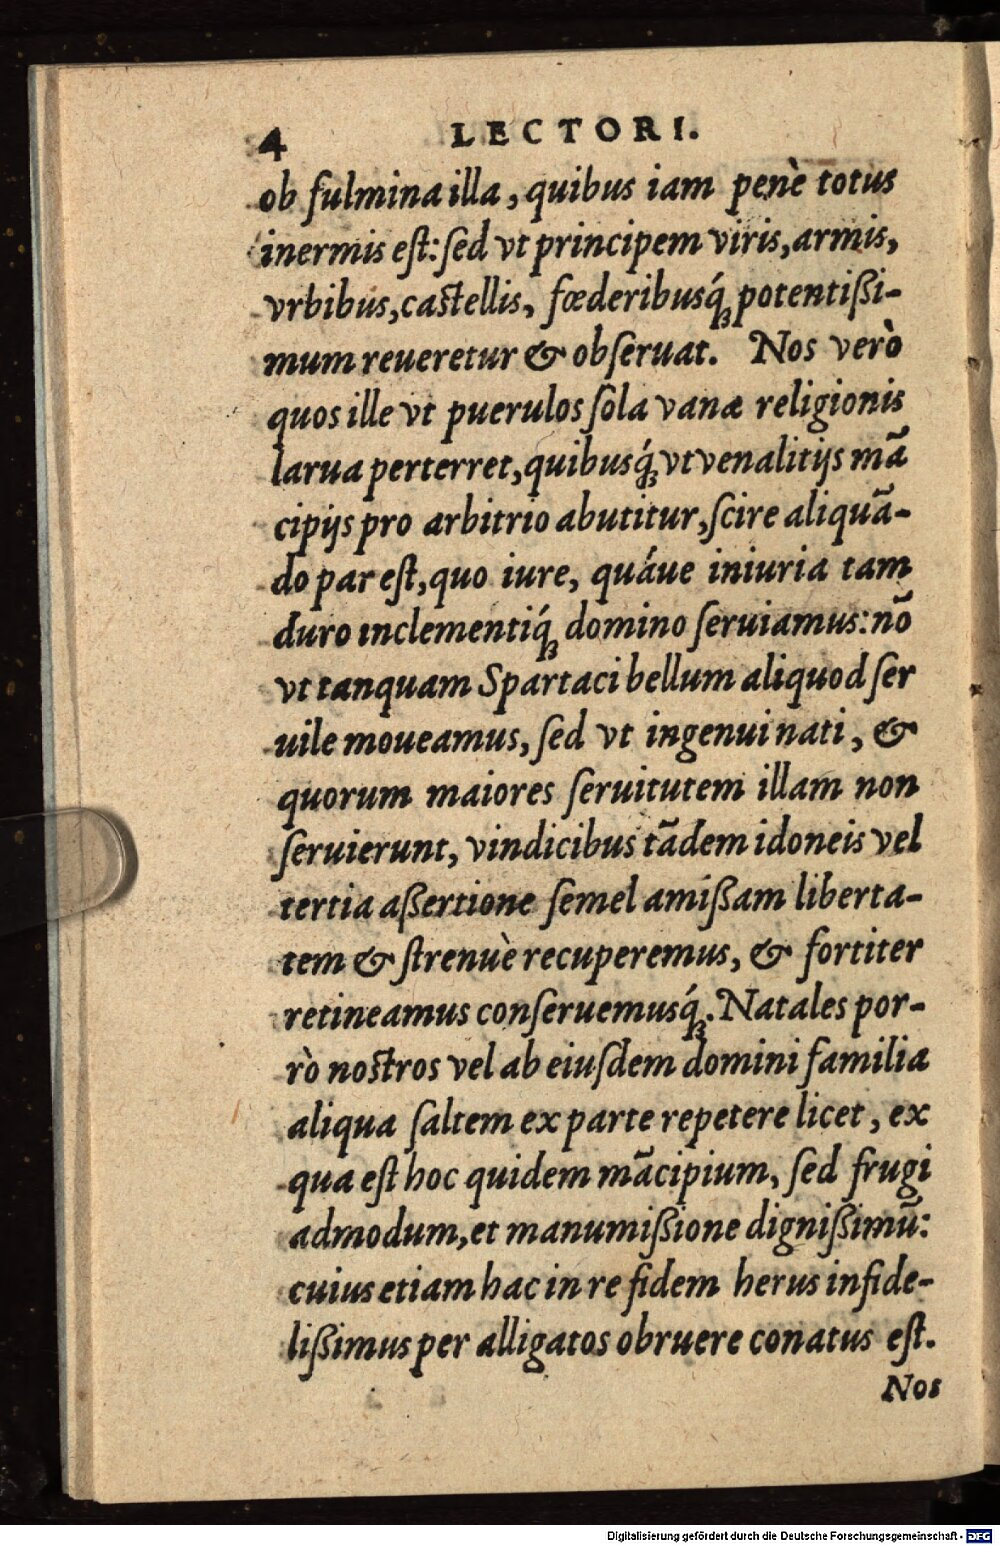 4 LECTORI.
ob fulmina illa, quibus iam penè totus
inermis eſt: ſed vt principem viris, armis,
vrbibus, caſtellis, fœderibusq́; potentißi-
mum reueretur & obſeruat. Nos verò
quos ille vt puerulos ſola vanæ religionis
larua perterret, quibusq́; vt venalitijs mā
cipijs pro arbitrio abutitur, ſcire aliquā-
do par eſt, quo iure, quáue iniuria tam
duro inclementiq́; domino ſeruiamus: nō
vt tanquam Spartaci bellum aliquod ſer
uile moueamus, ſed vt ingenui nati, &
quorum maiores ſeruitutem illam non
ſeruierunt, vindicibus tādem idoneis vel
tertia aßertione ſemel amißam liberta-
tem & ſtrenuè recuperemus, & fortiter
retineamus conſeruemusq́;. Natales por-
rò noſtros vel ab eiuſdem domini familia
aliqua ſaltem ex parte repetere licet, ex
qua eſt hoc quidem mācipium, ſed frugi
admodum, et manumißione dignißimū:
cuius etiam hac in re fidem herus infide-
lißimus per alligatos obruere conatus eſt.
Nos
Digitalisierung gefördert durch die Deutsche Forschungsgemeinschaft - DFG